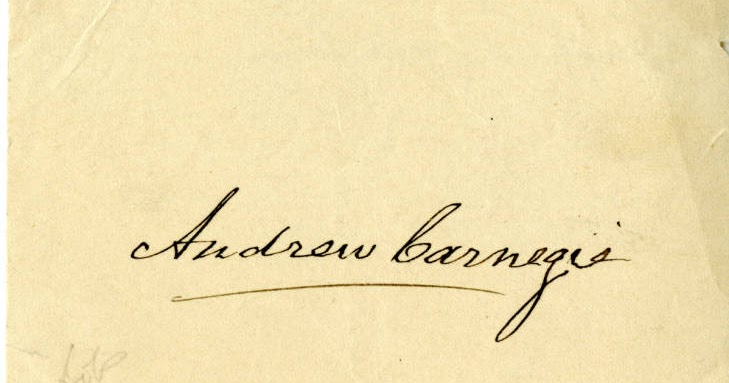 Andrew Carnegie